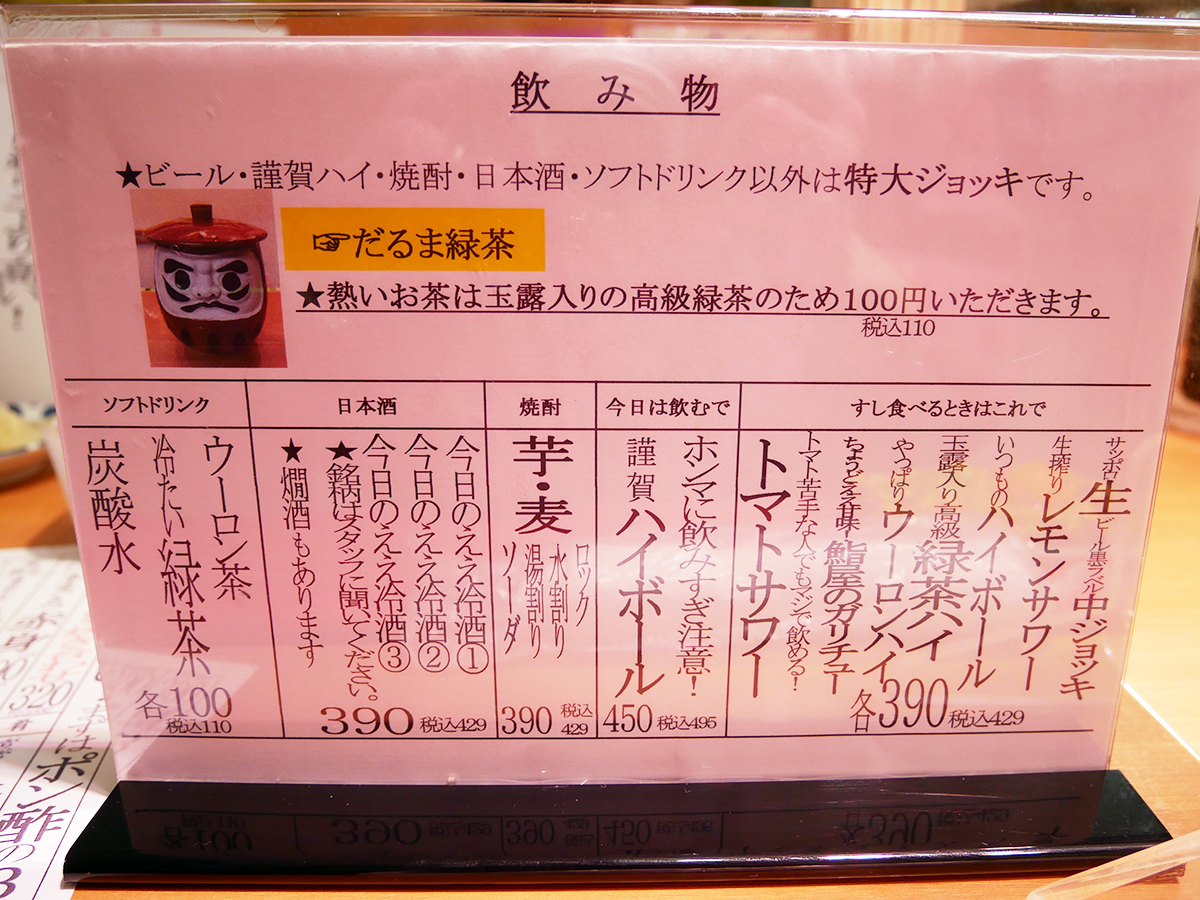 飲み物
★ビール・謹賀ハイ・焼酎・日本酒・ソフトドリンク以外は特大ジョッキです。
☞だるま緑茶
★熱いお茶は玉露入りの高級緑茶のため100円いただきます。
税込110
すし食べるときはこれで
サッポロ生ビール黒ラベル中ジョッキ
生搾りレモンサワー
いつものハイボール
玉露入り高級緑茶ハイ
やっぱりウーロンハイ
ちょうどええ甘味鮨屋のガリチュー
トマト苦手な人でもマジで飲める!
トマトサワー
各390税込429
今日は飲むで
ホンマに飲みすぎ注意!
謹賀ハイボール
450税込495
焼酎
芋・麦
ロック
水割り
湯割り
ソーダ
390税込429
日本酒
今日のええ冷酒①
今日のええ冷酒②
今日のええ冷酒③
★銘柄はスタッフに聞いてください。
★燗酒もあります
390税込429
ソフトドリンク
ウーロン茶
冷たい緑茶
炭酸水
各100
税込110
赤身
320
まずはポン酢の